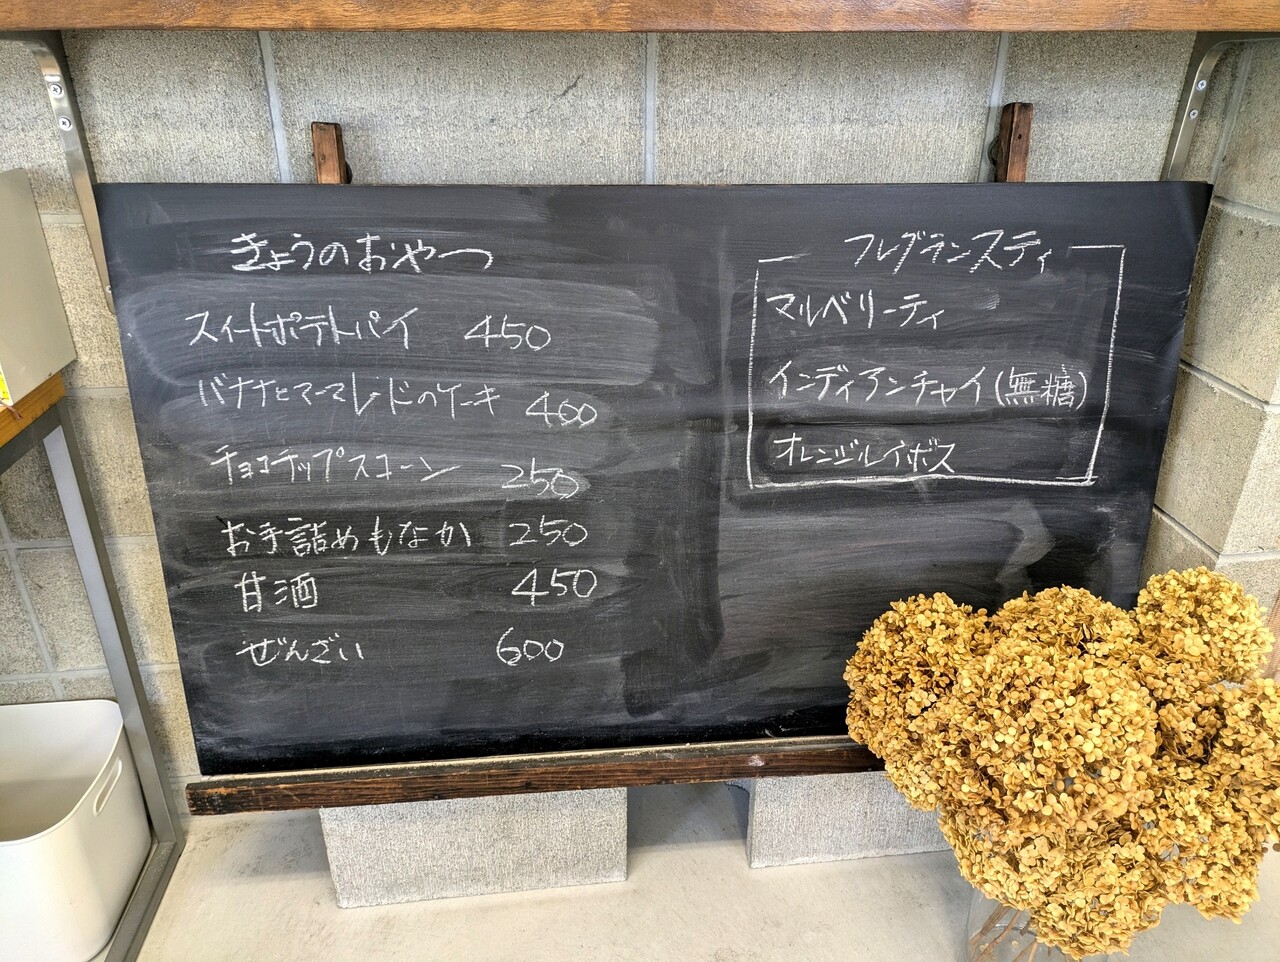 きょうのおやつ
スイートポテトパイ 450
バナナとマーマレードのケーキ 400
チョコチップスコーン 250
お手詰めもなか 250
甘酒 450
ぜんざい 600
フレグランスティ
マルベリーティ
インディアンチャイ(無糖)
オレンジルイボス